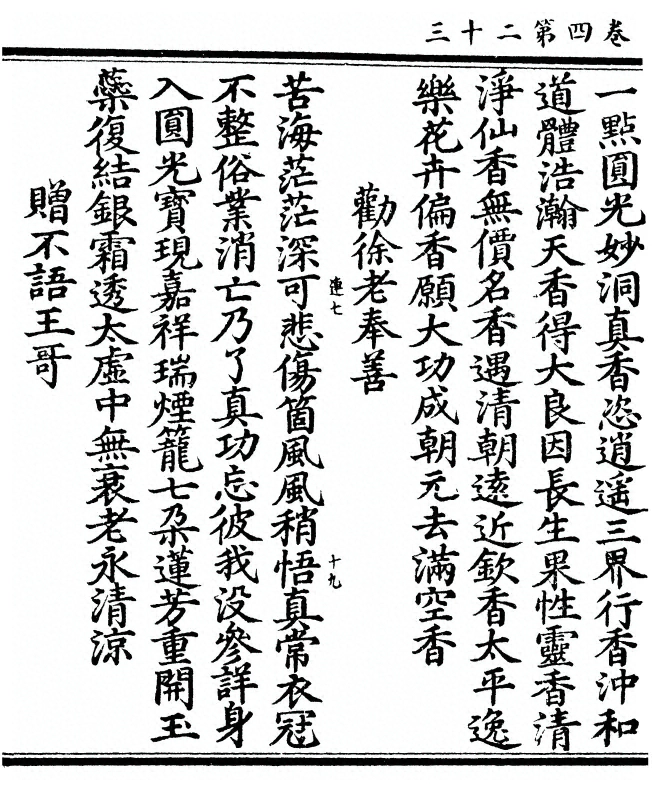 卷四第二十三
一點圓光妙洞真香恣逍遥三界行香沖和
道體浩瀚天香得大良因長生果性靈香清
淨仙香無價名香遇清朝遠近欽香太平逸
樂花卉偏香願大功成朝元去滿空香
勸徐老奉善
連七
十九
苦海茫茫深可悲傷箇風風稍悟真常衣冠
不整俗業消亡乃了真功忘彼我没參詳身
入圓光寶現嘉祥瑞煙籠七朵蓮芳重開玉
蘂復結銀霜透太虛中無衰老永清涼
贈不語王哥